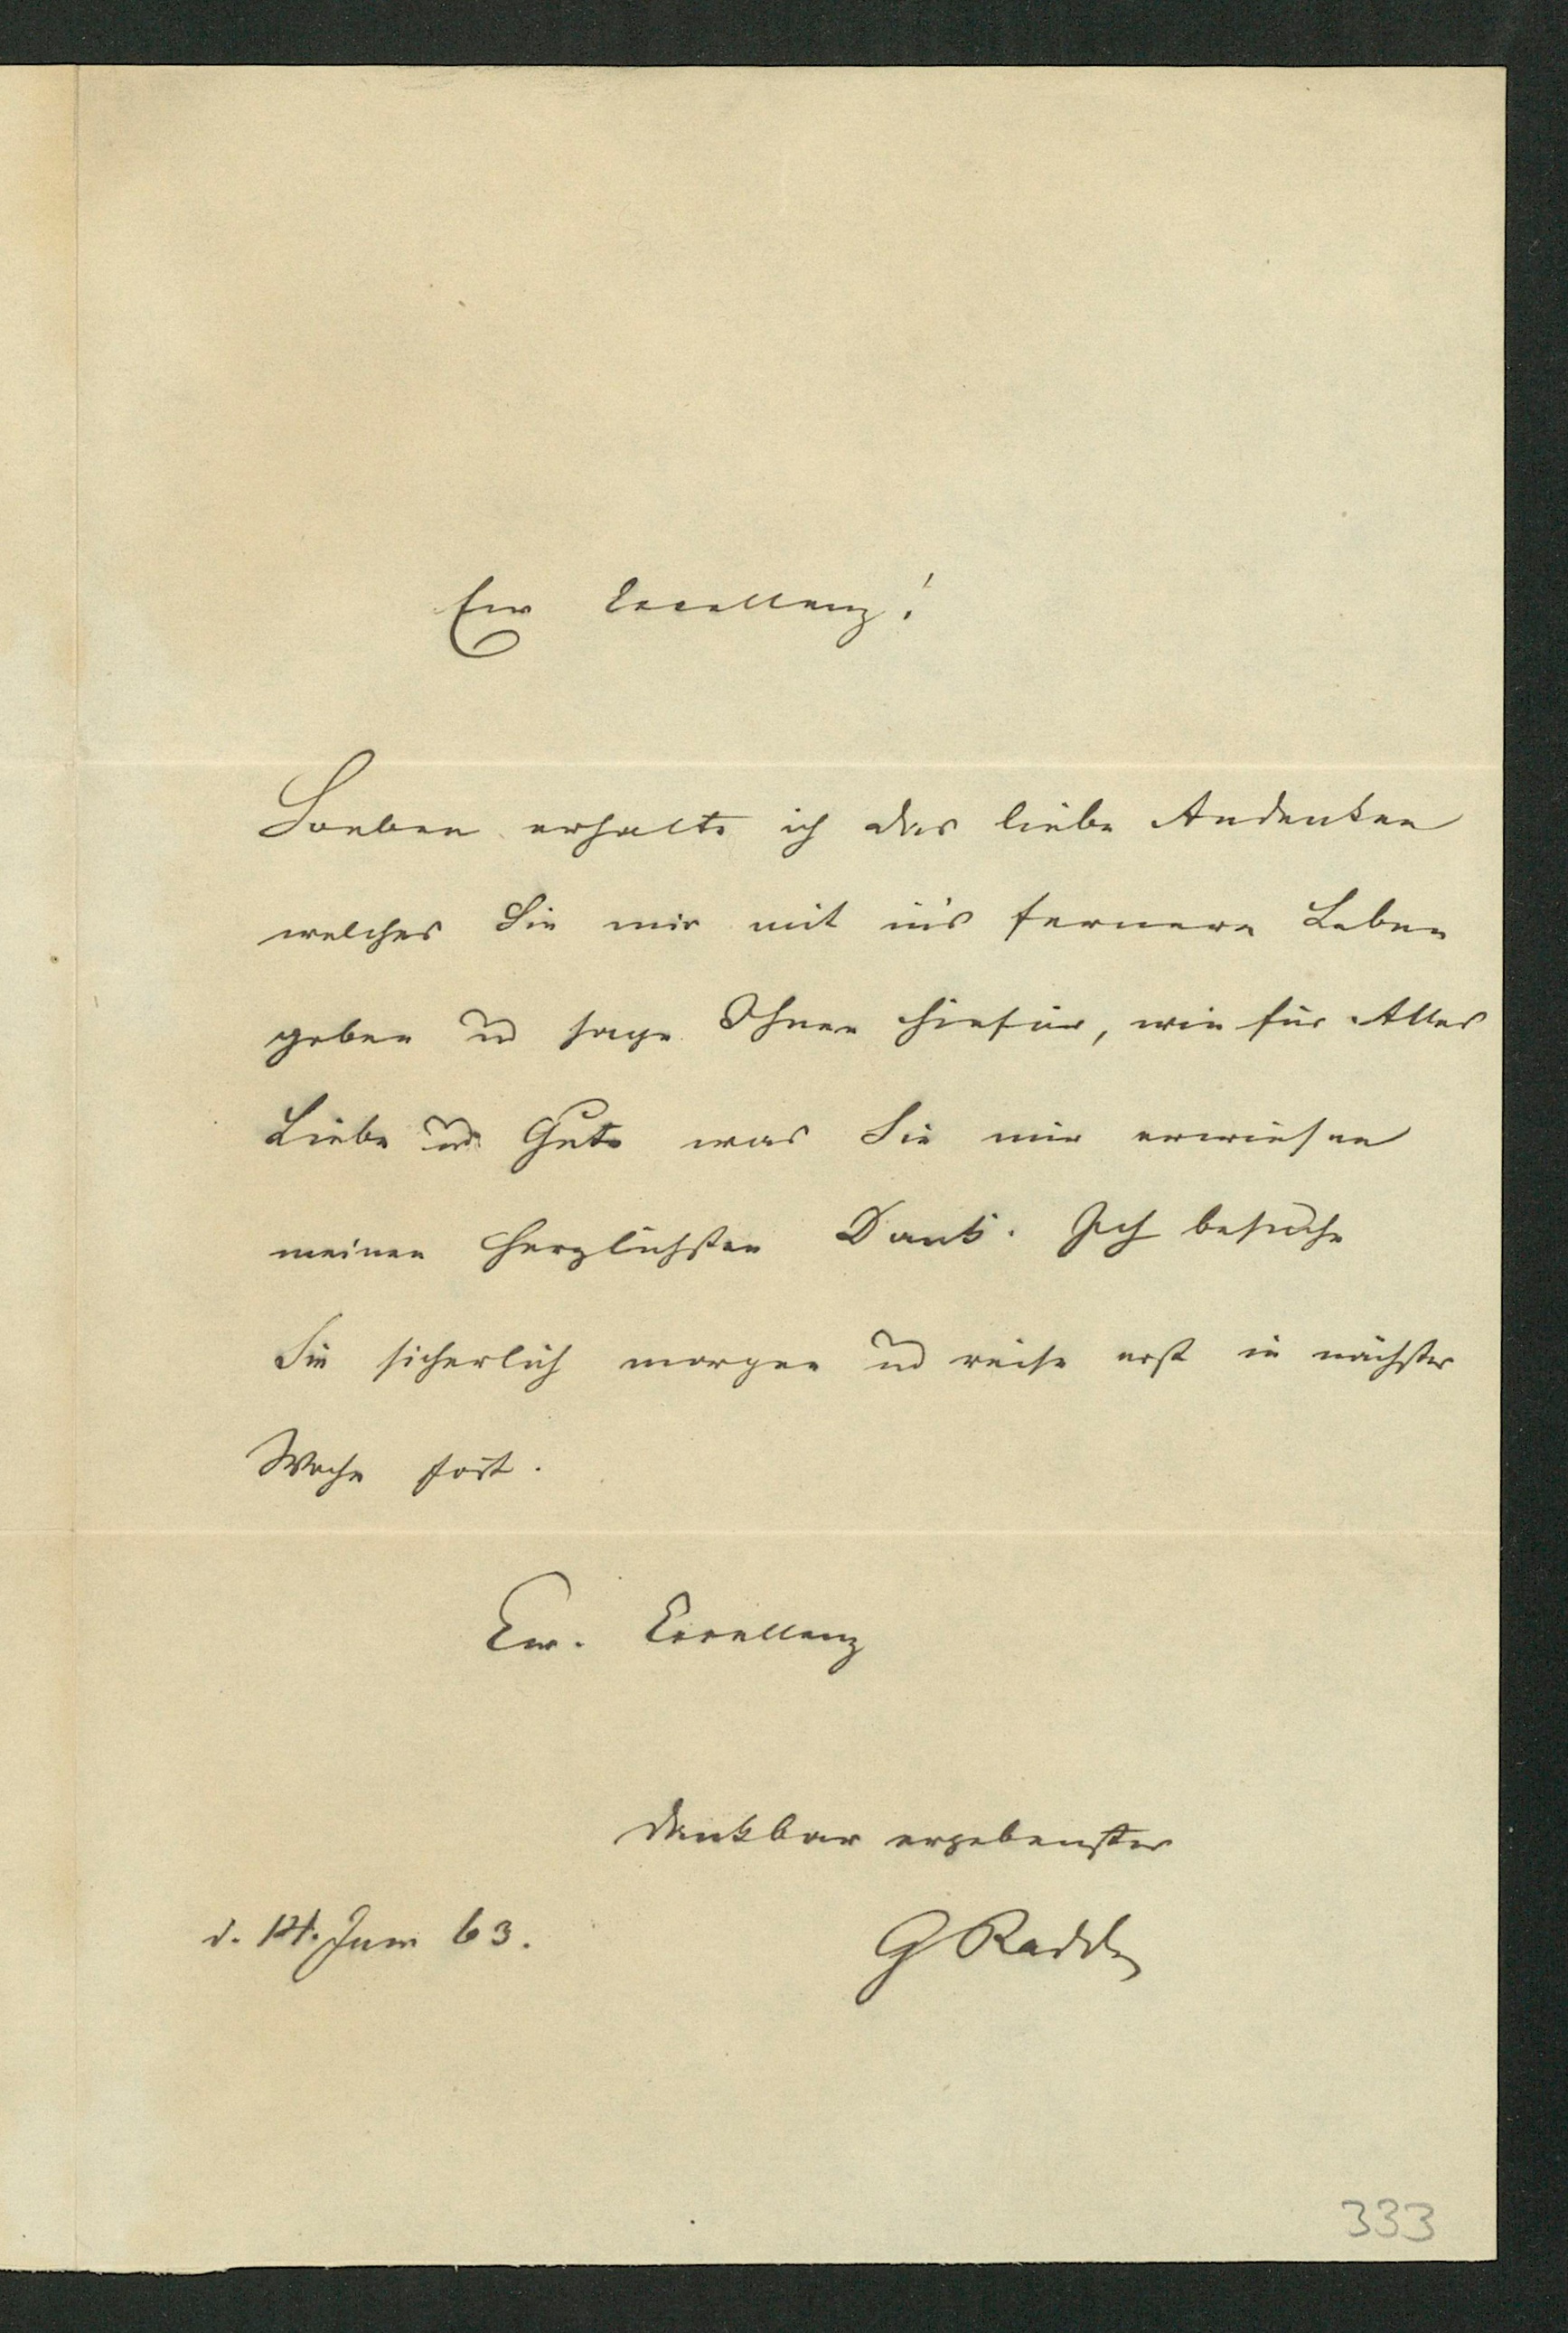 Ew Excellenz!
Soeben erhalte ich das liebe Andenken
welches Sie mir mit in's fernere Leben
geben und sage Ihnen hiefür, wie für Alles
Liebe und Gute was Sie mir erwiesen
meinen herzlichsten Dank. Ich besuche
Sie sicherlich morgen und reise erst in nächster
Woche fort.
Ew. Excellenz
dankbar ergebenster
d. 14. Juni 63.
G Radde
333